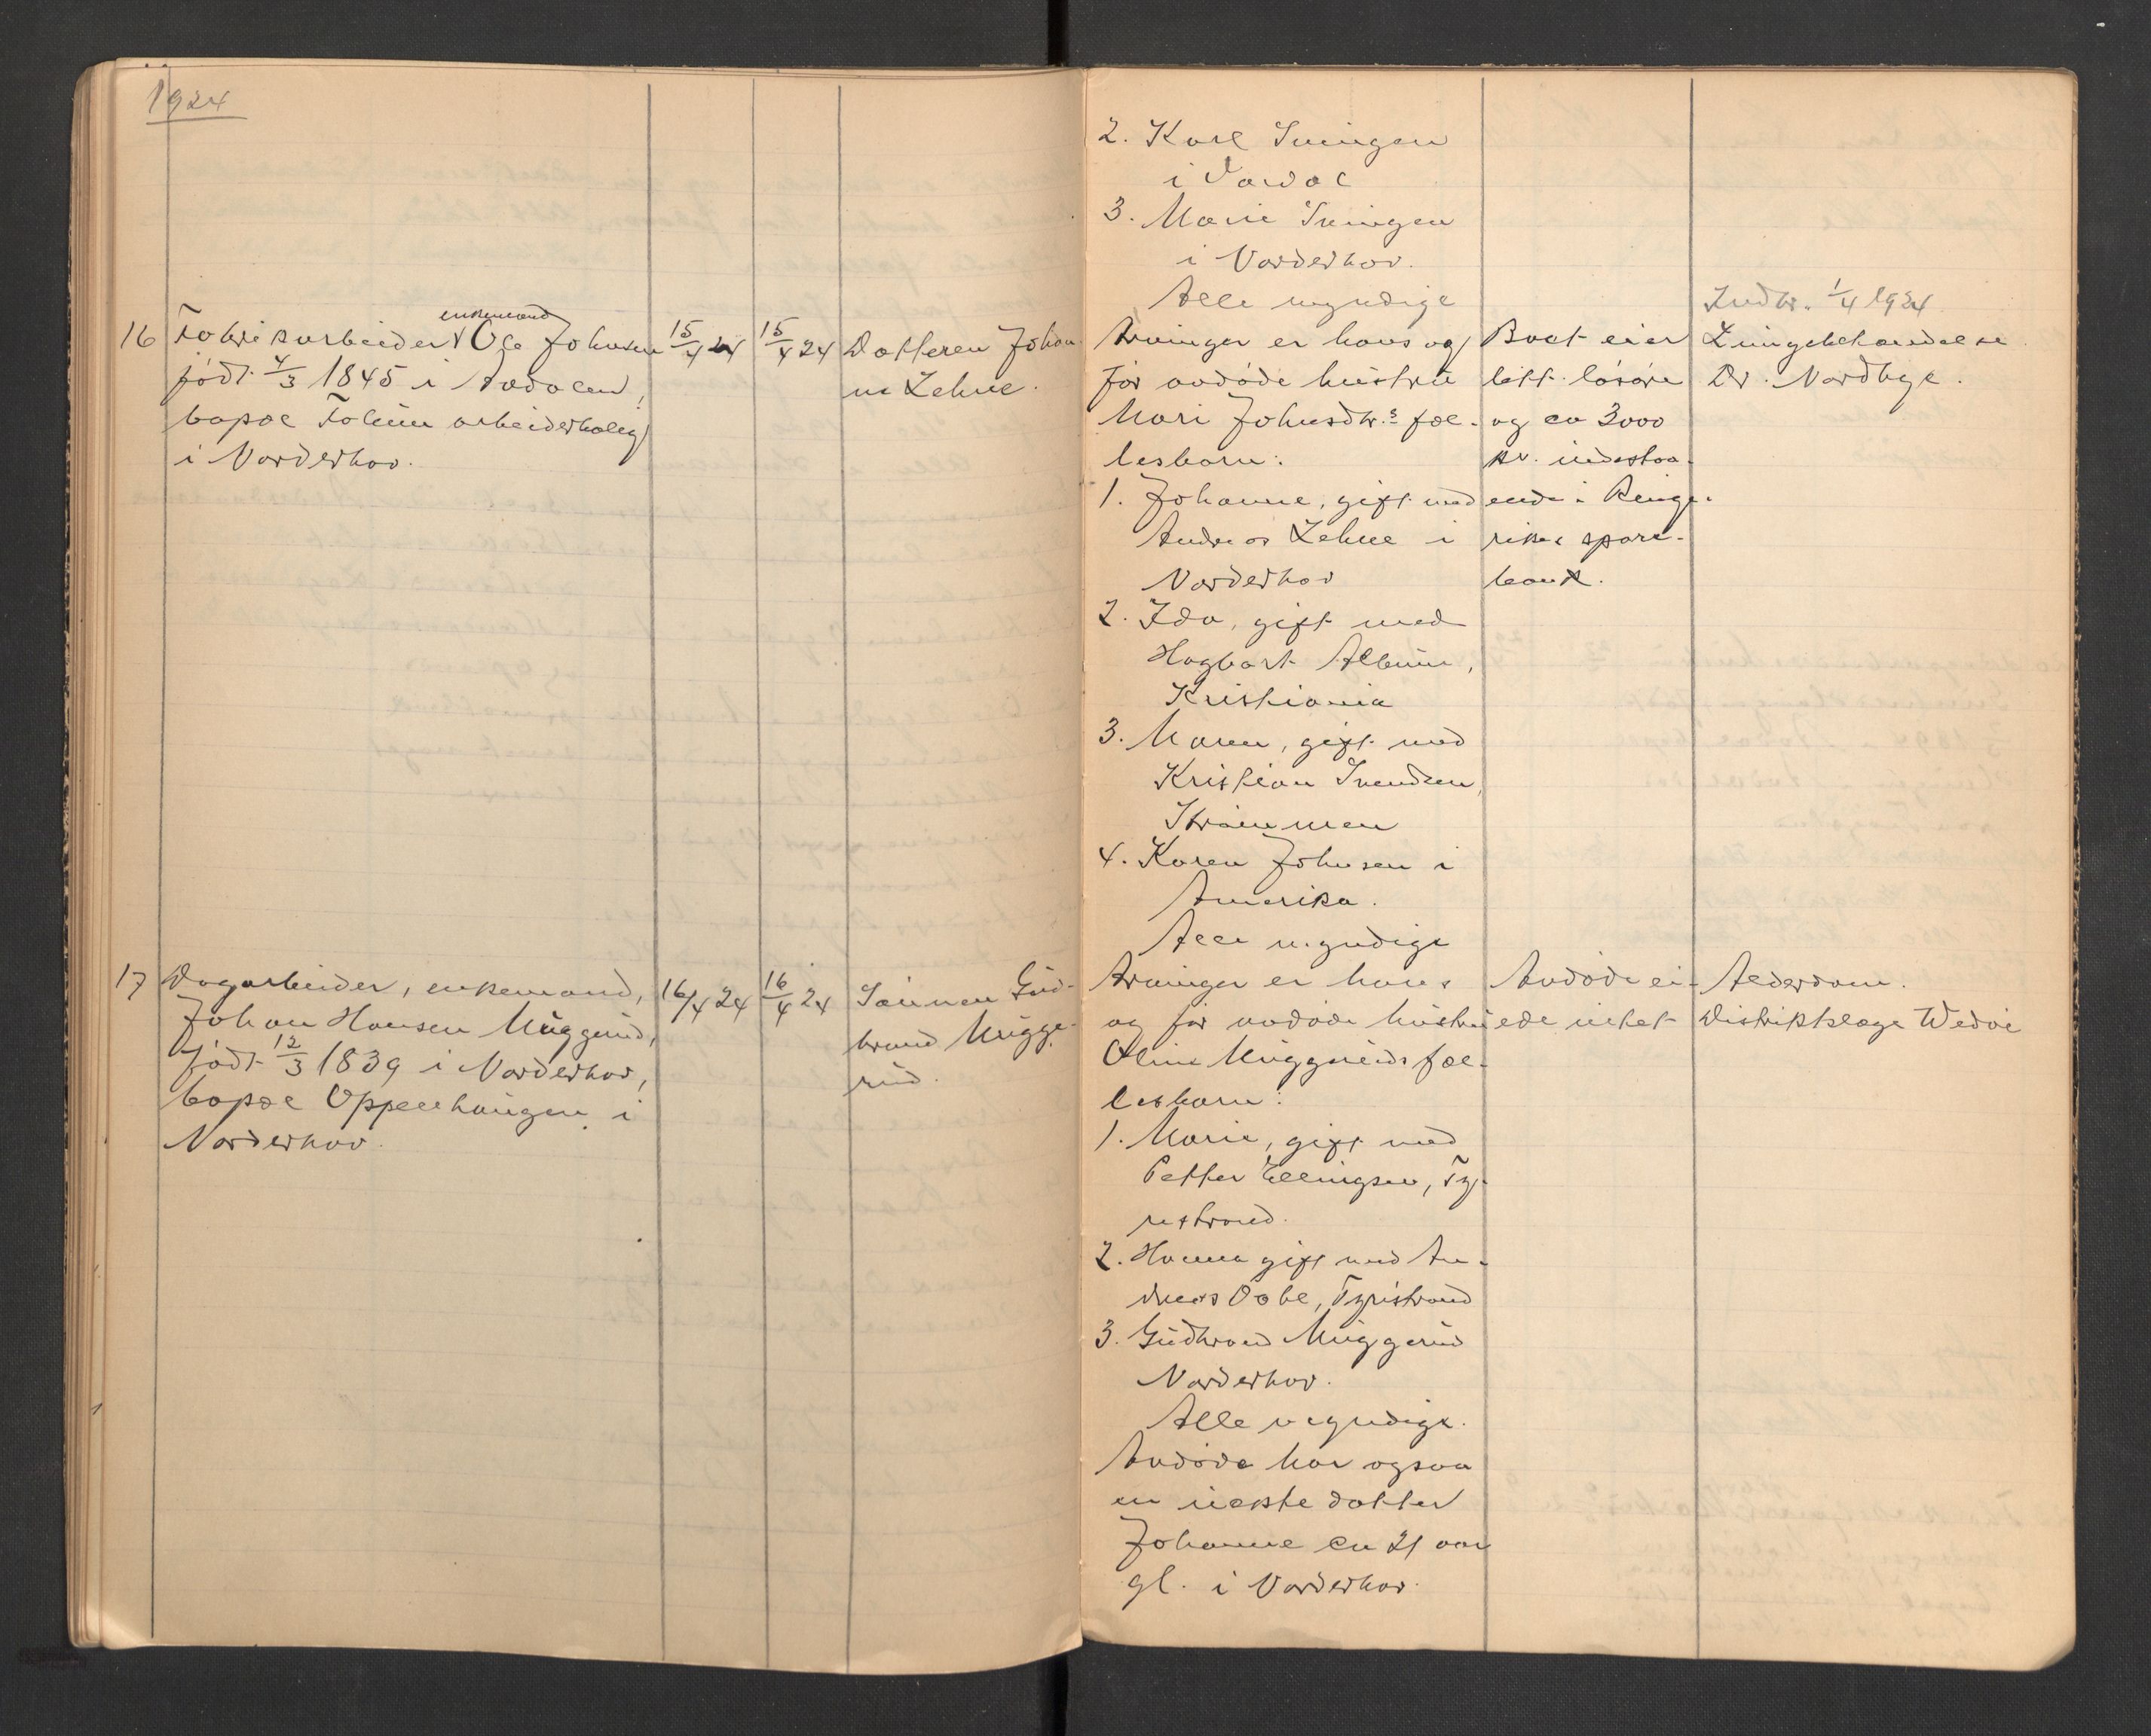 1924
16 Fabrikarbeider, enkemand Ole Johnsen
født 4/3 1845 i Aadalen,
bopæl Follum arbeiderbolig
i Norderhov.
15/4 24
15/4 24
Datteren Johan-
ne Lehne.
17 Dagarbeider, enkemand,
Johan Hansen Muggerud,
født 12/3 1839 i Norderhov,
bopæl Oppenhaugen i
Norderhov.
16/4 24
16/4 24
Sønnen Gud-
brand Mugge-
rud.
2. Karl
i
3. Marie
i Norderhov.
Alle myndige
Arvinger er hans og
før avdøde hustru
Mari Johnsdtr.s fæl-
lesbarn:
1. Johanne, gift med
Andreas Lehne i
Norderhov
2. Ida, gift med
Hagbart Album,
Kristiania
3. Maren, gift med
Kristian Svendsen,
Strømmen
4. Karen Johnsen i
Amerika.
Alle myndige
Arvinger er hans
og før avdøde hustru
Oline Muggeruds fæl-
lesbarn:
1. Marie, gift med
Petter Ellingsen, Ty-
ristrand.
2. Hanna gift med An-
dreas Tyristrand
3. Gudbrand Muggerud
Norderhov.
Alle myndige.
Avdøde har ogsaa
en uekte datter
Johanne en 21 aar
gl. i Norderhov.
Boet eier
litt løsøre
og ca 3000
kr. indestaa-
ende i Ringe-
rikes spare-
bank.
Avdøde ei-
ede intet
Indb. 1/4 1924
Lungebetændelse
Dr. Nordbye.
Alderdom.
Distriktslæge Wedøe